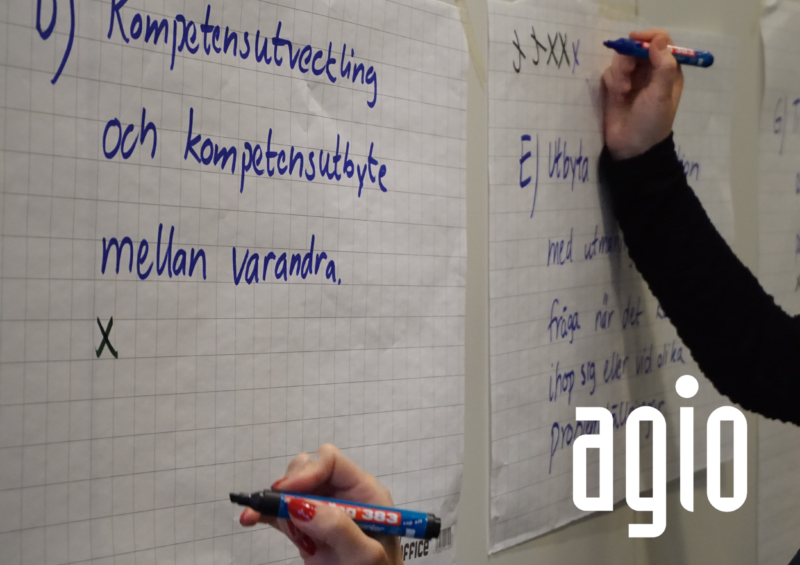 D) Kompetensutveckling
och kompetensutbyte
mellan varandra.
X
X X X X X
E) Utbyta
med
fråga när det
ihop sig eller vid olika
383
OFFICE
agio